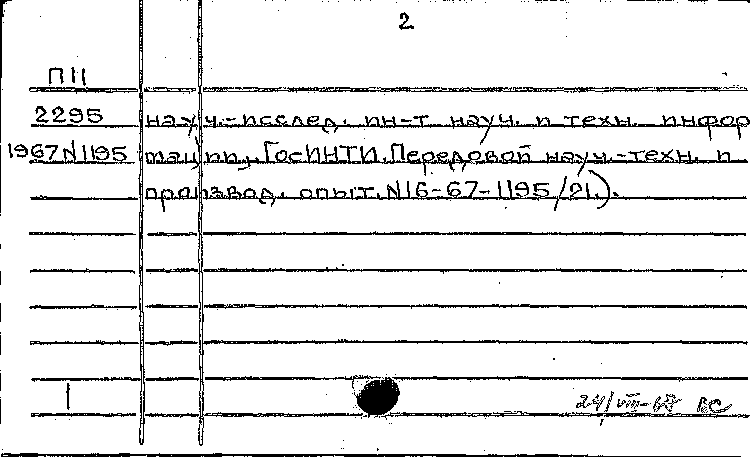 2
П11
2295 науч.-исслед. ин-т науч. и техн. инфор
1967N1195 мации, ГосИНТИ. Передовой науч.-техн. и
производ. опыт. N16-67-1195/21.).
24/VIII-67 ВС